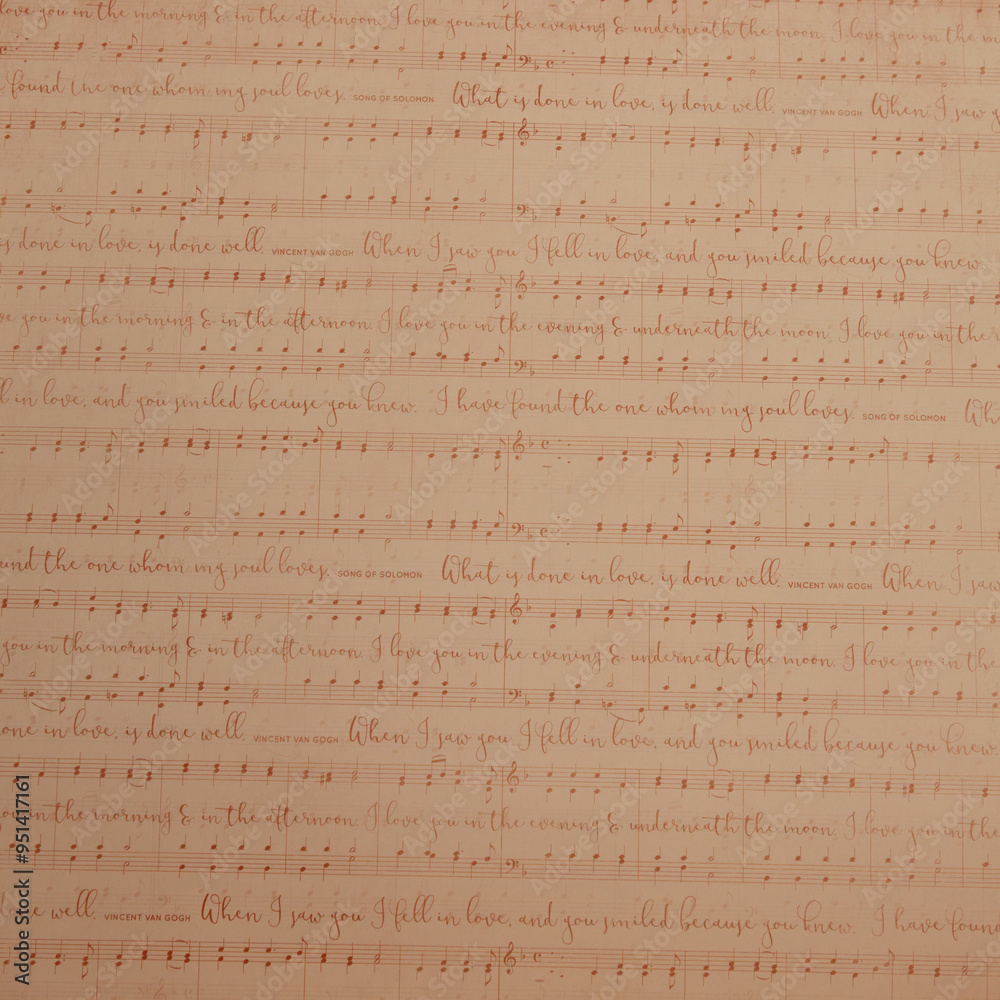 love you in the morning & in the afternoon. I love you in the evening & underneath the moon. I love you in the
found the one whom my soul loves. SONG OF SOLOMON What is done in love, is done well. VINCENT VAN GOGH When I saw
is done in love, is done well. VINCENT VAN GOGH When I saw you I fell in love, and you smiled because you knew.
you in the morning & in the afternoon. I love you in the evening & underneath the moon. I love you in the
in love, and you smiled because you knew. I have found the one whom my soul loves. SONG OF SOLOMON
the one whom my soul loves. SONG OF SOLOMON What is done in love, is done well. VINCENT VAN GOGH When I saw
you in the morning & in the afternoon. I love you in the evening & underneath the moon. I love you in the
in love, is done well. VINCENT VAN GOGH When I saw you I fell in love, and you smiled because you knew.
in the morning & in the afternoon. I love you in the evening & underneath the moon. I love you in the
well. VINCENT VAN GOGH When I saw you I fell in love, and you smiled because you knew. I have found
Adobe Stock | #951417161